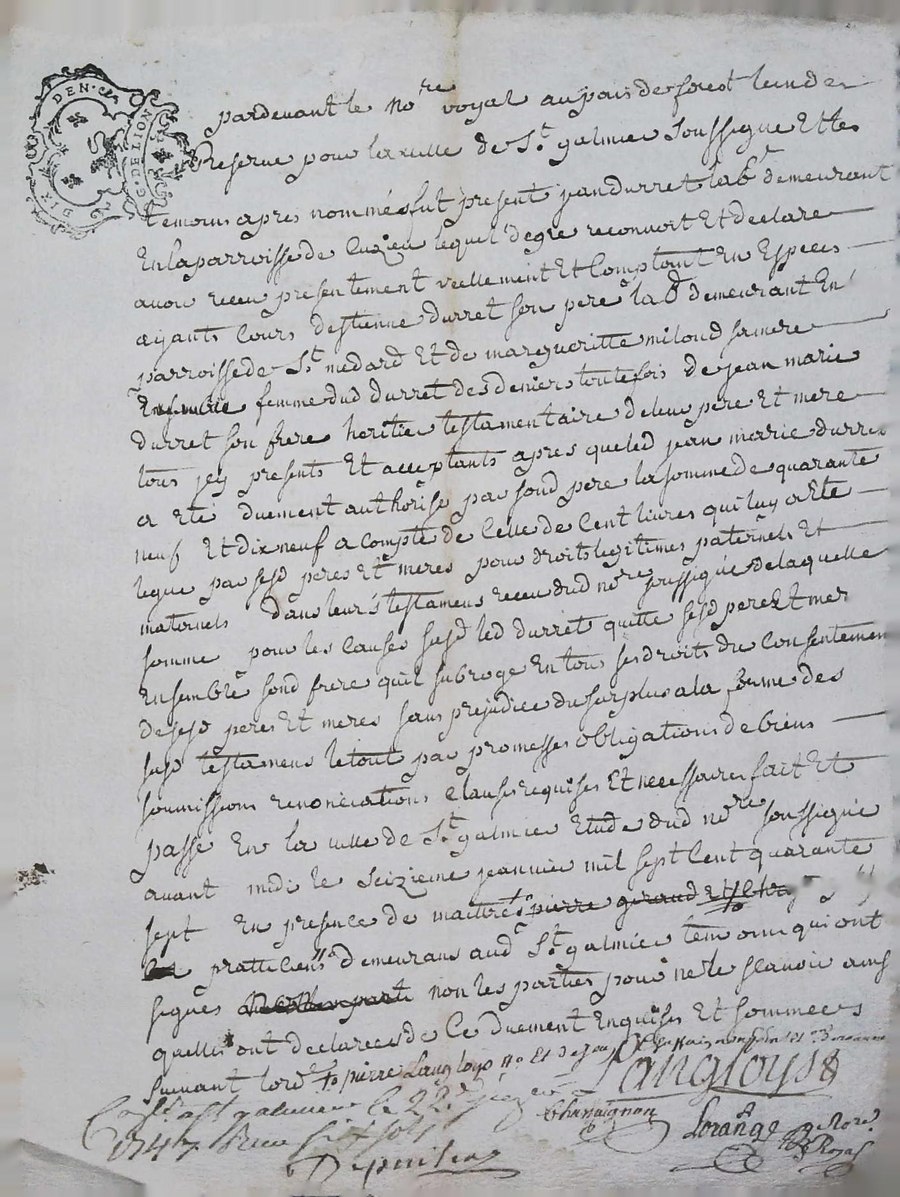 DEN. C.
G. DE LION
pardevant le no.re royal au pais de forest
Reserve pour la ville de S.t galmier soussigné Et les
temoins apres nommés fut present jean durret lab.r demeurant
En la parroisse de Cuzieu lequel de gre reconnoit Et declare
avoir receu presentement reellement Et Comptant En Especes
ayants Cours d'estienne durret son pere lab.r demeurant En
parroisse de S.t medard Et de margueritte miloud sa mere
femme dud durret des deniers toutefois de jean marie
durret son frere heritier testamentaire de leur pere Et mere
tous jcy presents Et acceptants apres que led jean marie durret
a Eté duement authorise par sond pere la somme de quarante
neuf Et dix neuf a compte de Celle de Cent livres qui luy a Eté
legué par sesd peres Et meres pour droits legitimes paternels Et
maternels dans leurs testamens receu dud no.re soussigné de laquelle
somme pour les Causes susd led durret quitte sesd peres Et mer
Ensemble sond frere qu'il subroge En tous ses droits du Consentemen
de sesd peres Et meres sans prejudice du surplus a la forme des
susd testamens le tout par promesses obligations de biens
soumissions renonciations Clauses requises Et necessaires fait Et
passé En la ville de S.t galmier Etude dud no.re soussigné
avant midi le seizieme janvier mil sept Cent quarante
sept En presence de maitres pierre geraud
pratticiens demeurans aud S.t galmier temoins qui ont
signés non les parties pour ne le scavoir ains
quelles ont declarees de Ce duement Enquises Et sommées
suivant lord.e pierre Langloys
Langloys
Chassaignon
Lorange
a S.t galmier le 22.e
1747